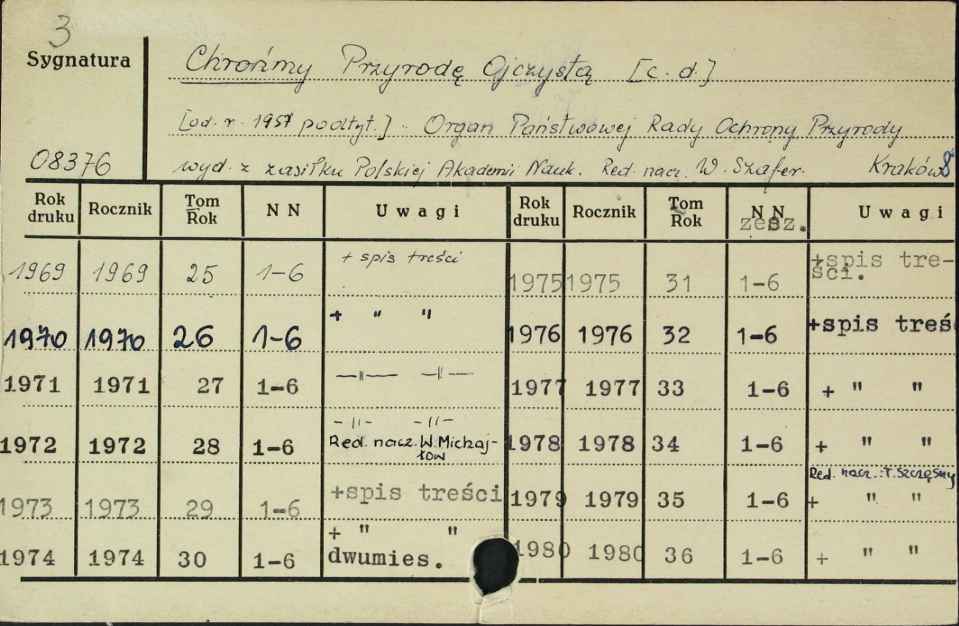 3
Sygnatura
Chrońmy Przyrodę Ojczystą [c.d.]
[od. r. 1957 podtyt.] Organ Państwowej Rady Ochrony Przyrody
08376
wyd. z zasiłku Polskiej Akademii Nauk. Red. nacz. W. Szafer. Kraków
Rok druku Rocznik Tom Rok NN Uwagi Rok druku Rocznik Tom Rok NN zesz. Uwagi
1969 1969 25 1-6 + spis treści 1975 1975 31 1-6 +spis tre-ści.
1970 1970 26 1-6 + " " 1976 1976 32 1-6 +spis treś
1971 1971 27 1-6 —"— —"— 1977 1977 33 1-6 + " "
1972 1972 28 1-6 -"- -"- Red. nacz. W. Michaj-łow 1978 1978 34 1-6 + " "
1973 1973 29 1-6 +spis treści 1979 1979 35 1-6 Red. nacz.: T. Szczęsny + " "
1974 1974 30 1-6 + " " dwumies. 1980 1980 36 1-6 + " "